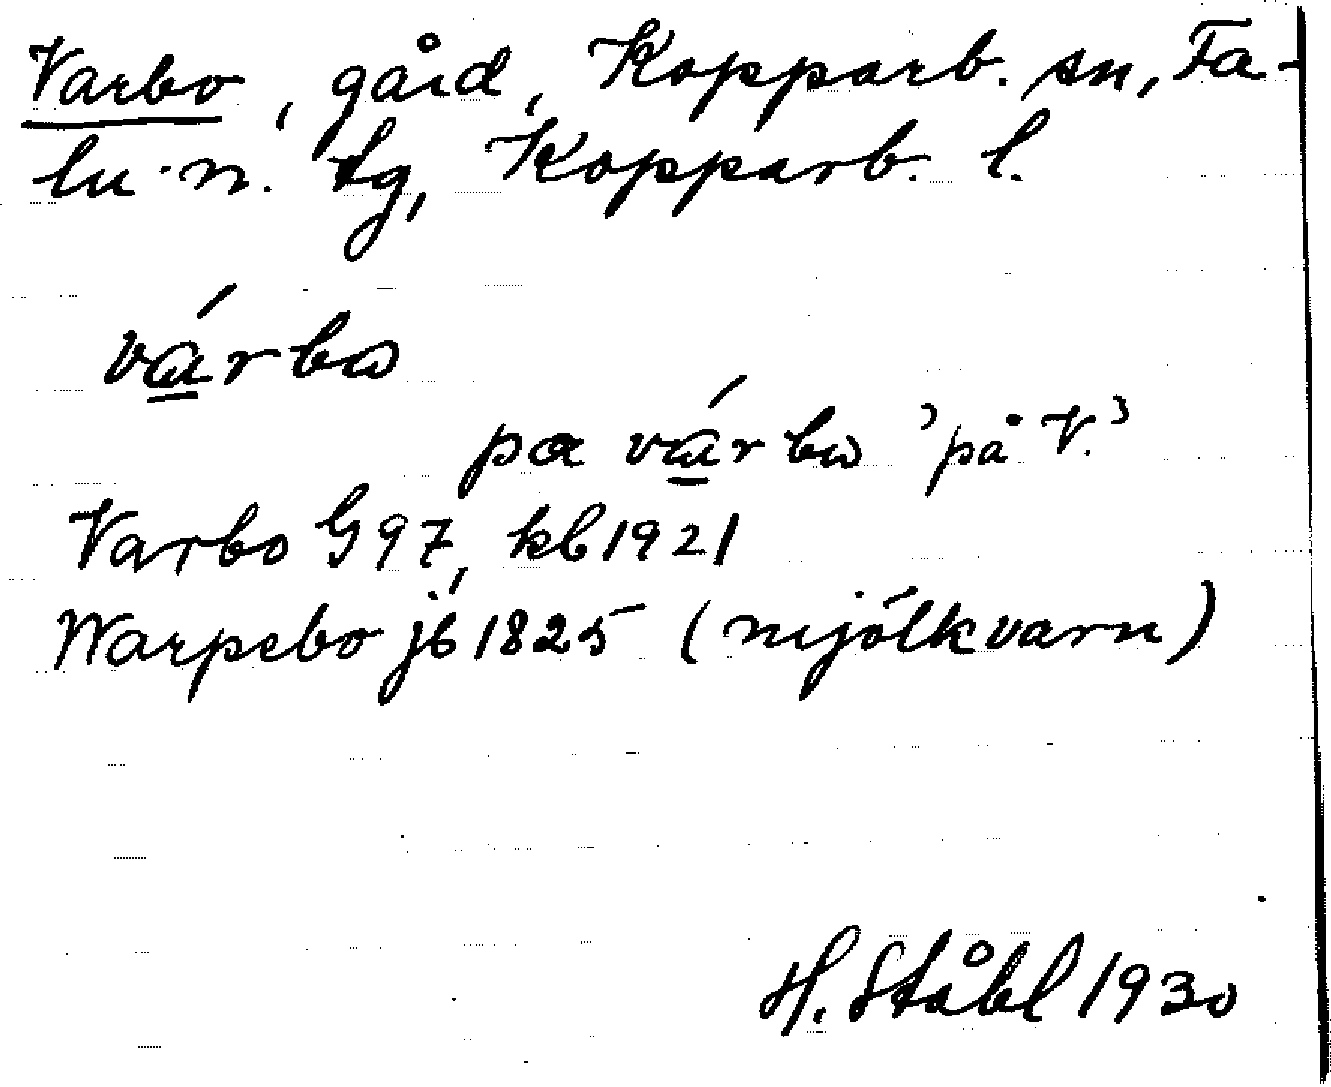 Varbo, gård, Kopparb. sn, Fa-
lu n. tg, Kopparb. l.
várbω
pα várbω 'på V.'
Varbo G 97, kb 1921
Warpebo jb 1825 (mjölkvarn)
H. Ståhl 1930